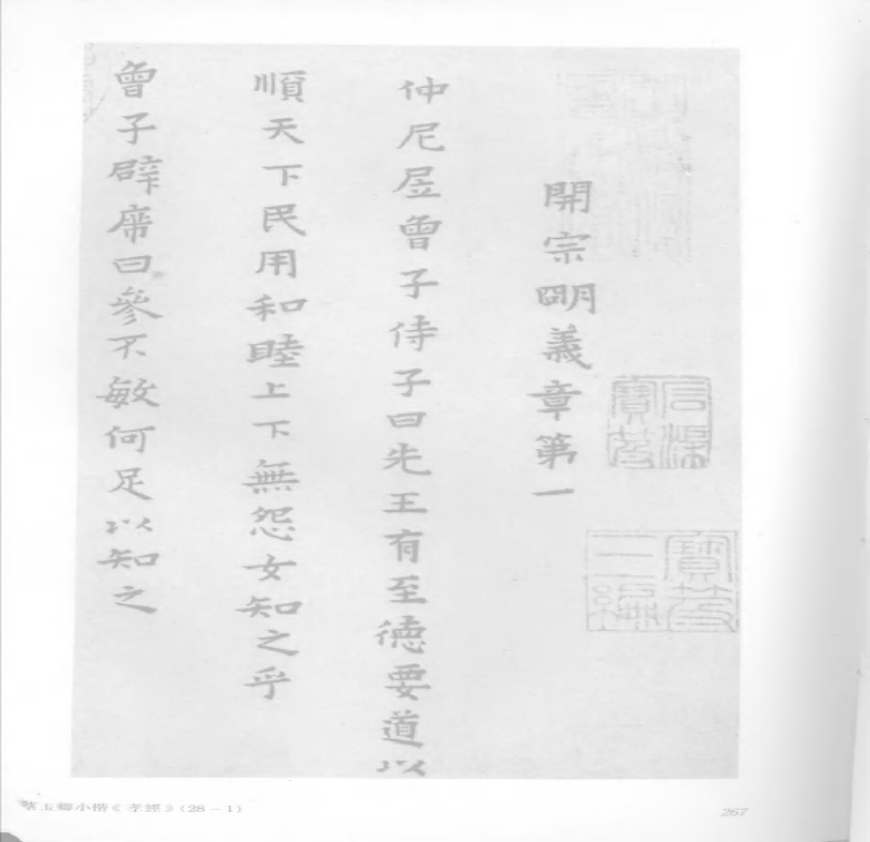 開宗明義章第一
仲尼凥曾子侍子曰先王有至德要道以
順天下民用和睦上下無怨女知之乎
曾子辟席曰參不敏何足以知之
寶笈
三編
玉卿小楷《孝經》(28-1)
267